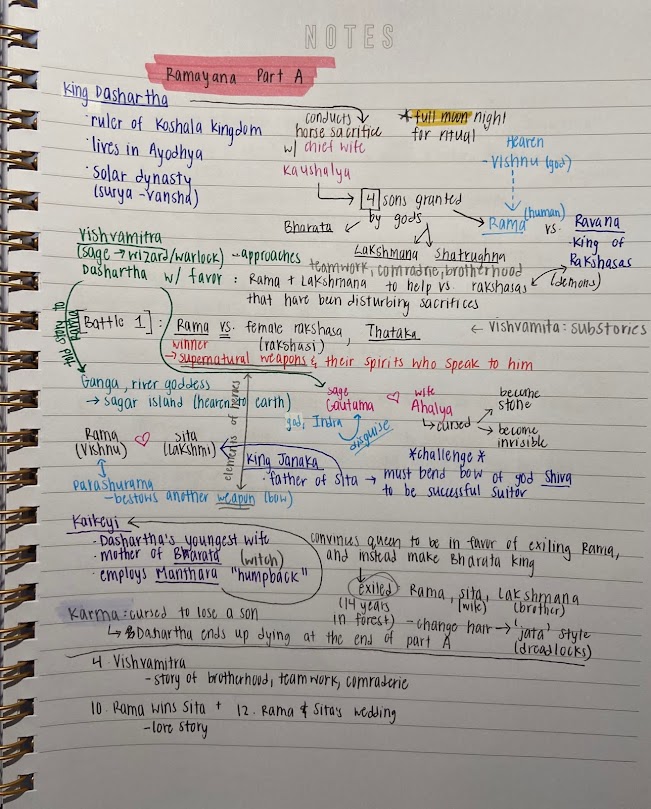 NOTES
Ramayana Part A
King Dashartha
· ruler of Koshala Kingdom
· lives in Ayodhya
· Solar dynasty
(surya-vansha)
conducts
horse sacrifice
w/ chief wife
Kaushalya
* full moon night
for ritual
Heaven
- Vishnu (god)
4 sons granted
by gods
Bharata
Lakshmana Shatrughna
teamwork, comradrie, brotherhood
Rama (human) vs. Ravana
· King of
Rakshasas
(demons)
Vishvamitra
(sage → wizard/warlock) - approaches
Dashartha w/ favor : Rama + Lakshmana to help vs. rakshasas
that have been disturbing sacrifices
told story to
Rama
[Battle 1] : Rama vs. female rakshasa, Thataka
winner (rakshasi)
← Vishvamita: substories
→ supernatural weapons & their spirits who speak to him
Ganga, river goddess
→ sagar island (heaven to earth)
elements of
sage
Gautama ♡ wife
Ahalya
↳ cursed
become
stone
become
invisible
god, Indra
disguise
Rama
(Vishnu) ♡ Sita
(Lakshmi)
King Janaka
· father of Sita → must bend bow of god Shiva
to be successful suitor
*challenge*
Parashurama
- bestows another weapon (bow)
Kaikeyi
· Dashartha's youngest wife
· mother of Bharata (witch)
· employs Manthara "humpback"
convinces queen to be in favor of exiling Rama,
and instead make Bharata king
exiled Rama, Sita, Lakshmana
(wife) (brother)
(14 years
in forest) - change hair → 'jata' style
(dreadlocks)
Karma: cursed to lose a son
↳ Dashartha ends up dying at the end of part A
4. Vishvamitra
- story of brotherhood, teamwork, comraderie
10. Rama wins Sita + 12. Rama & Sita's wedding
- love story